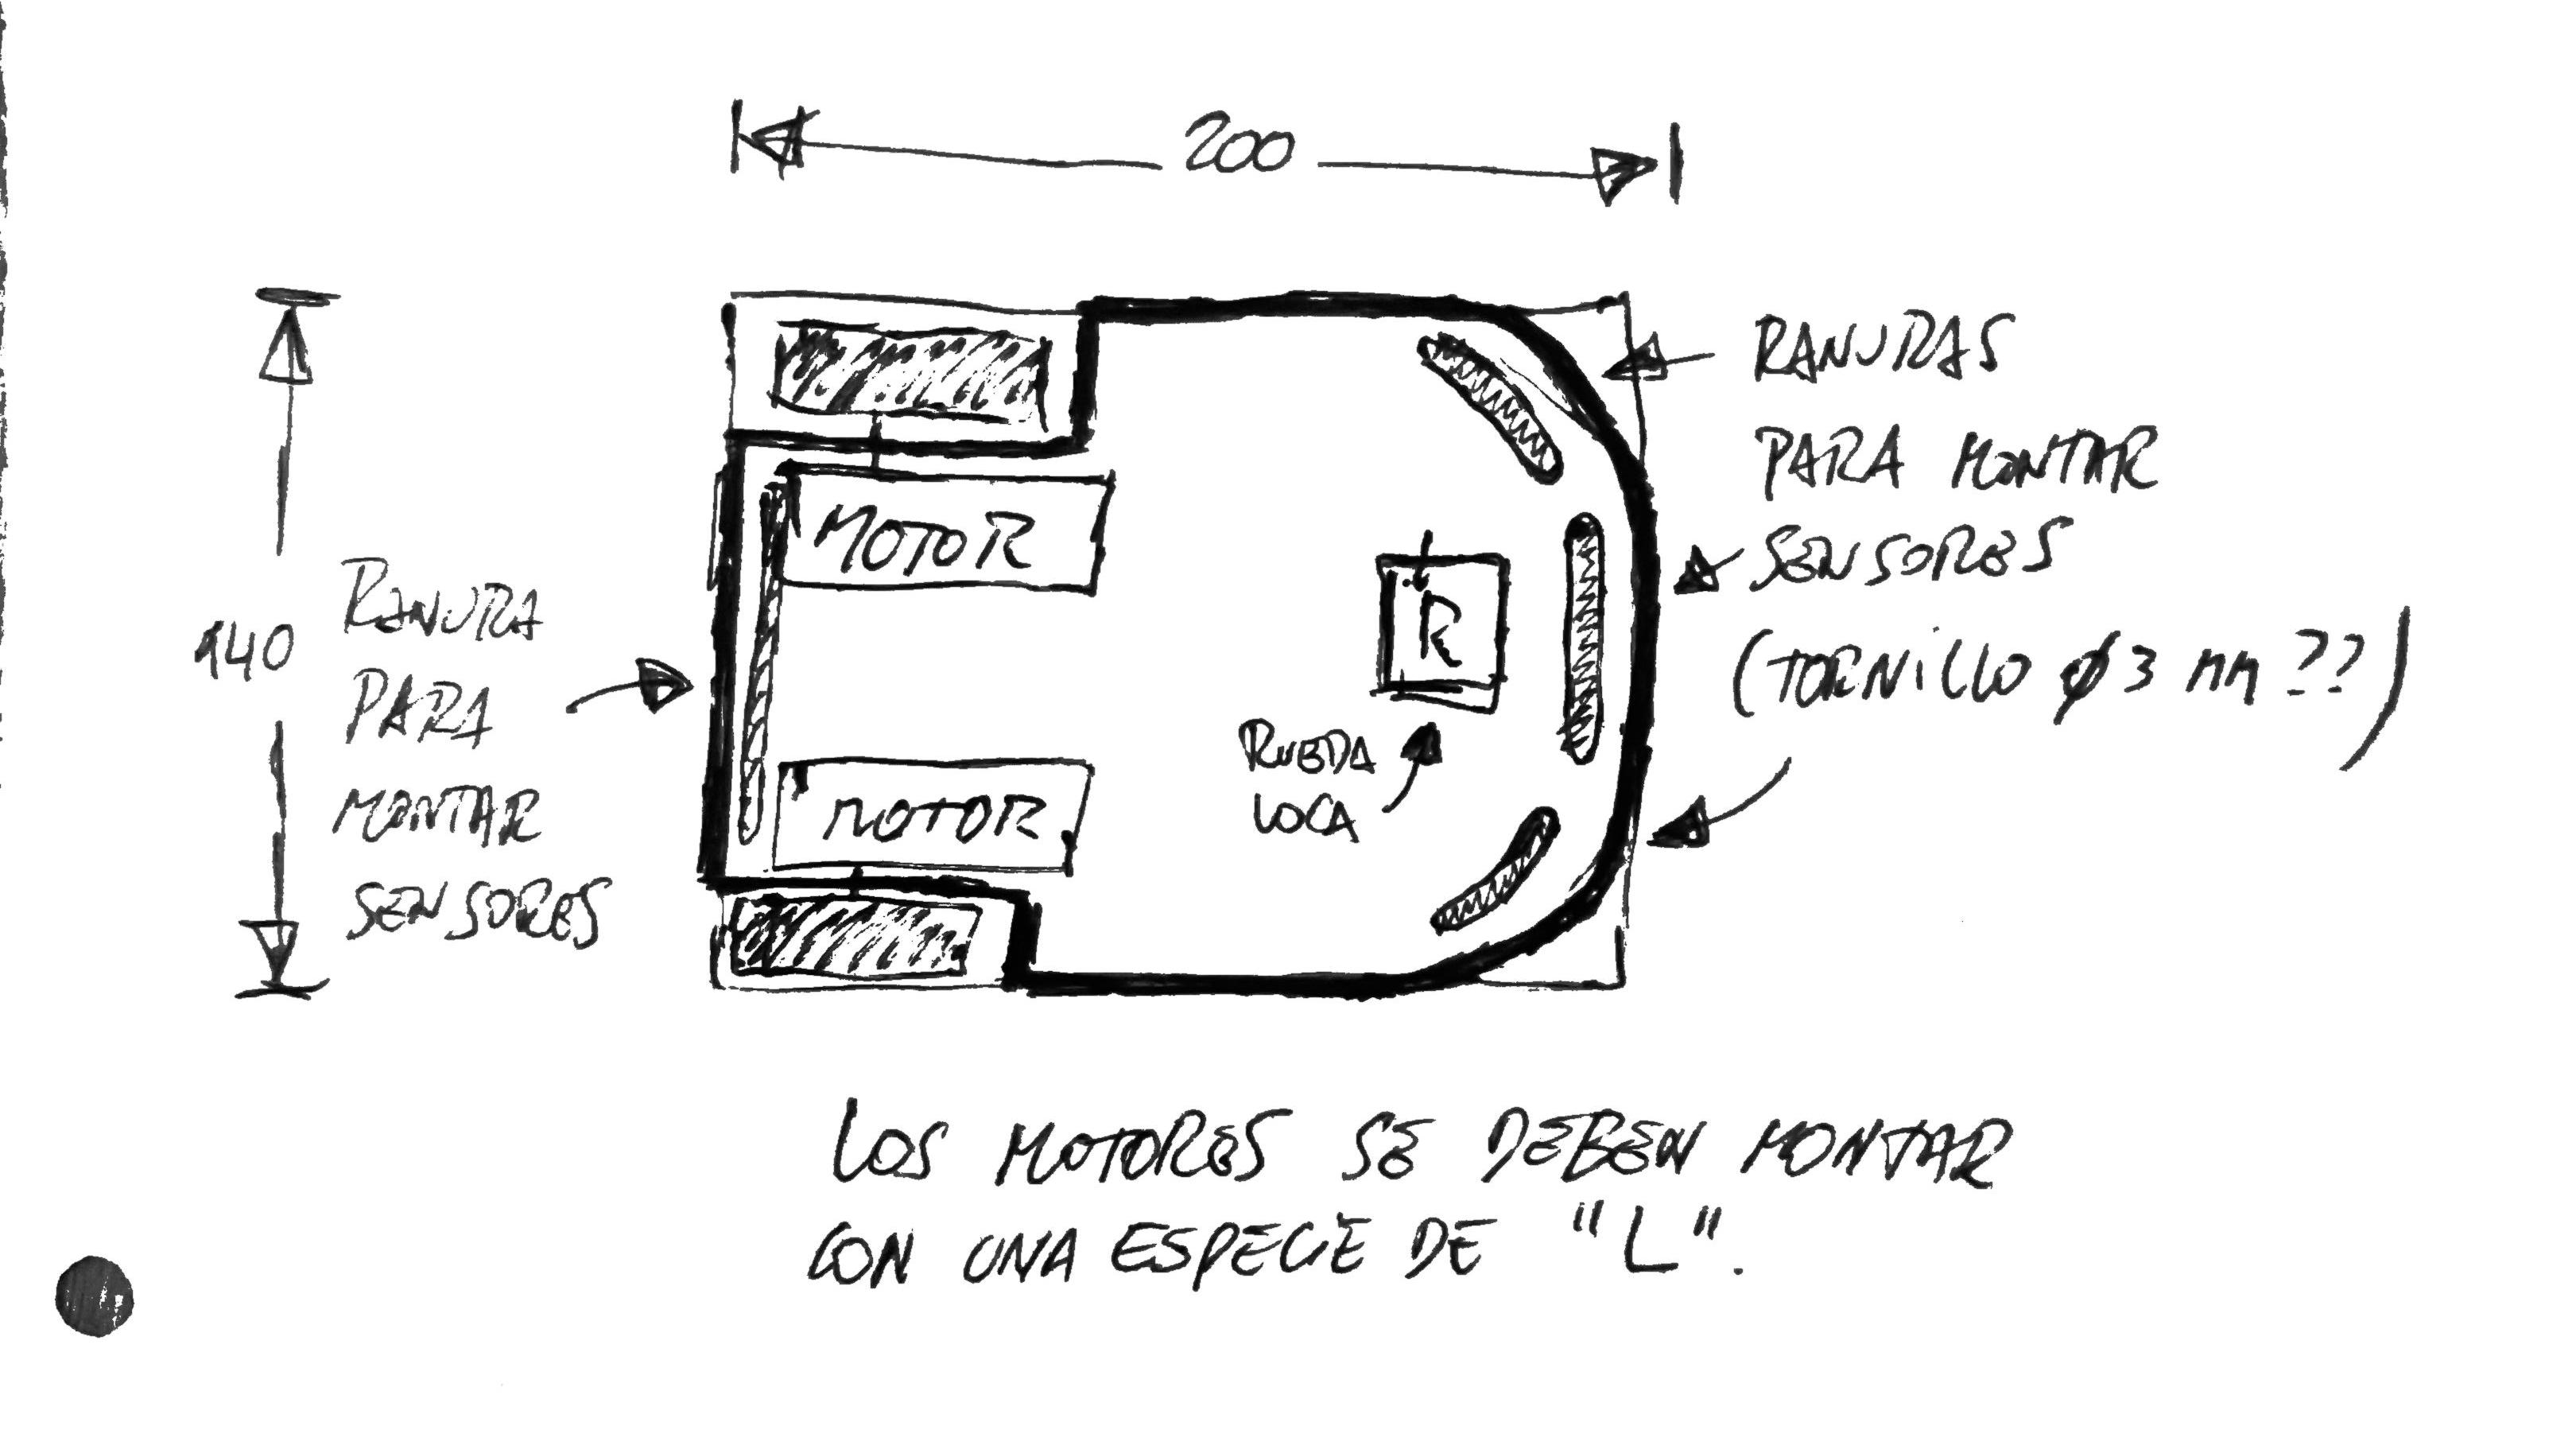 200
140
RANURA
PARA
MONTAR
SENSORES
MOTOR
MOTOR
R
RUEDA
LOCA
RANURAS
PARA MONTAR
SENSORES
(TORNILLO Ø3 mm ??)
LOS MOTORES SE DEBEN MONTAR
CON UNA ESPECIE DE "L".